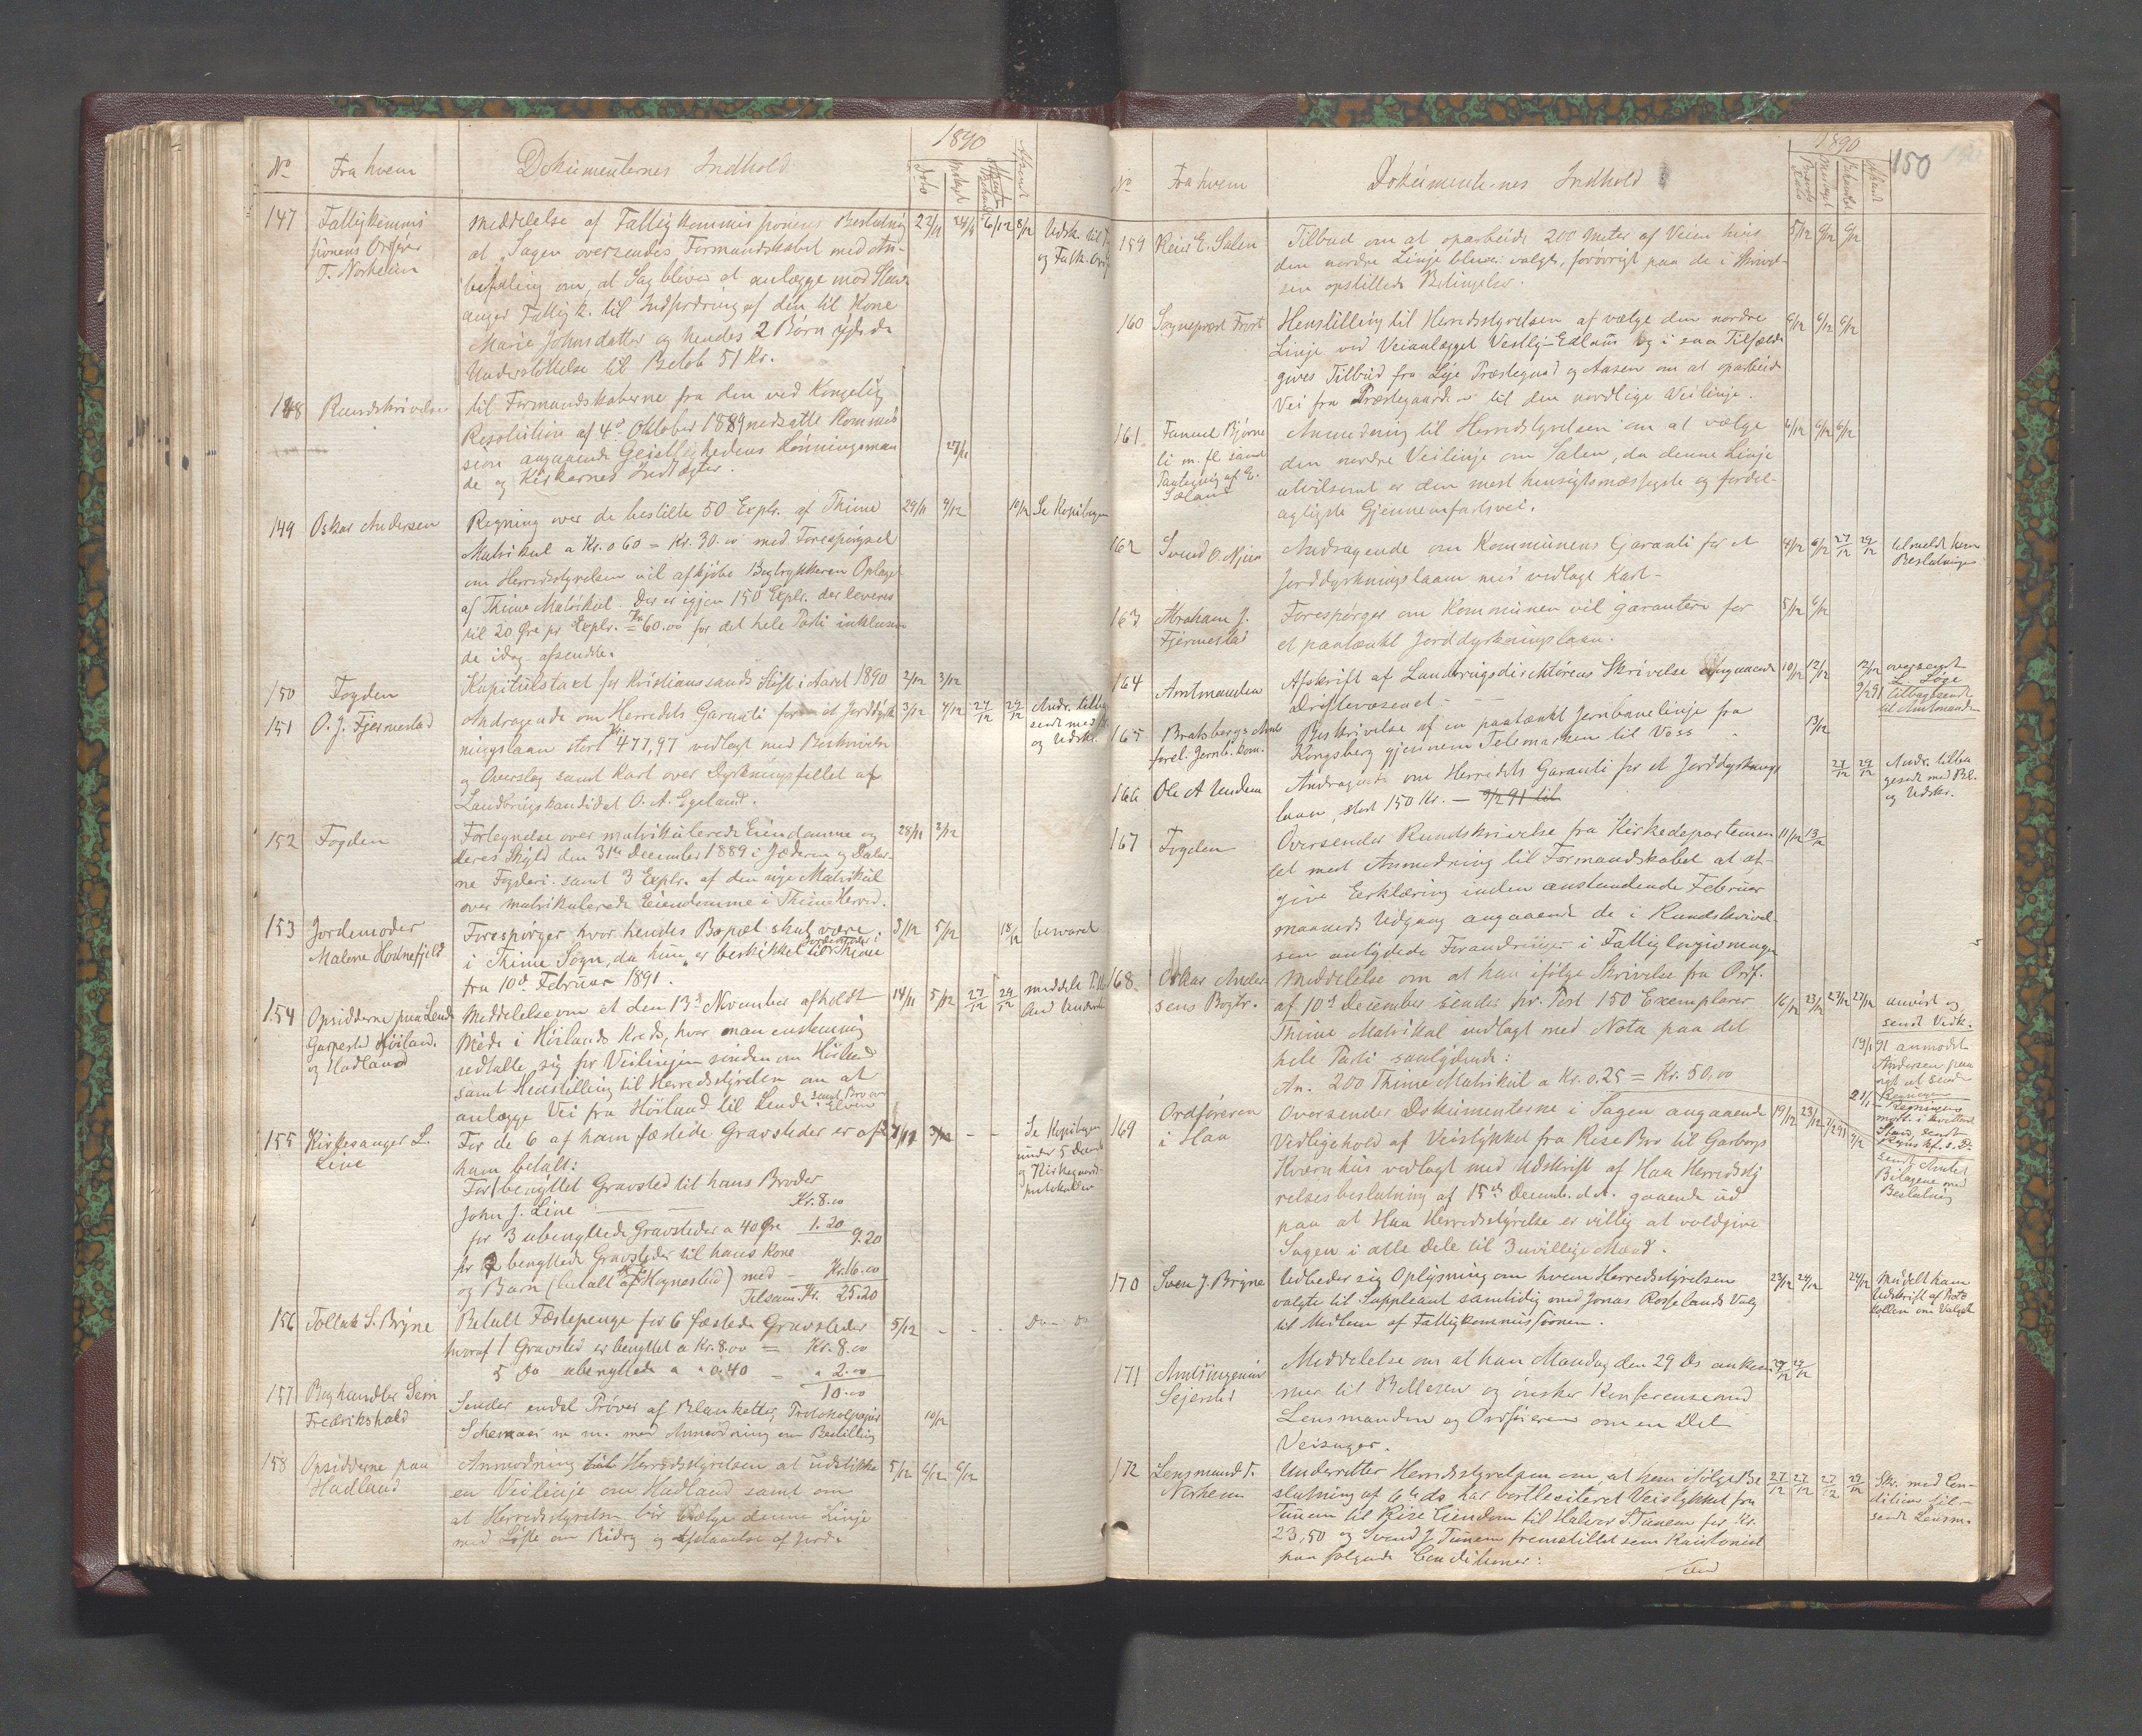 1890
No
Fra hvem
Dokumenternes Indhold
Dato
Afsendt
147
Fattigkommis
sionens Ordfører
T. Norheim
Meddelelse af Fattigkommissionens Beslutning
at Sagen oversendes Formandskabet med An-
befaling om, at Sag bliver at anlægge mod Stav-
anger Fattigk. til Indfordring af den til Kone
Marie Johnsdatter og hendes 2 Børn ydede
Understøttelse til Beløb 51 Kr.
22/11 24/11 6/12 8/12
Udsk. til
og Fatk. Ordf
148
Rundskrivelse
til Formandskaberne fra den ved Kongelig
Resolution af 4de Oktober 1889 nedsatte Kommis
sion angaaende Geistlighedens Lønningsmaa
de og Kirkernes Indtægter.
27/11
149
Oskar Andersen
Regning over de bestilte 50 Explr. af Thime
Matrikul a Kr. 0 60 = Kr. 30.00 med Forespørgsel
om Herredsstyrelsen vil afkjøbe Bogtrykkeren Oplaget
af Thime Matrikul. Der er igjen 150 Explr. der leveres
til 20 Øre pr Explr. = Kr. 60.00 for det hele Parti inklusive
de idag afsendte.
29/11 4/12 10/12 Se Kopibogen
150
Fogden
Kapitelstaxt for Kristianssands Stift i Aaret 1890
2/12 3/12
151
O. J. Fjermestad
Andragende om Herredets Garanti for et Jorddyrk
ningslaan stort Kr. 477,97 vedlagt med Beskrivelse
og Overslag samt Kart over Dyrkningsfeltet af
Landbrugskandidat O. A. Egeland.
3/12 4/12 27/12 29/12
Andr. tilbag
sendt med
og Udskr.
152
Fogden
Fortegnelse over matrikulerede Eiendomme og
deres Skyld den 31te December 1889 i Jæderen og Daler-
ne Fogderi. samt 3 Explr. af den nye Matrikul
over matrikulerede Eiendomme i Thime Herred.
28/11 2/12
153
Jordemoder
Malene Hodnefjeld
Forespørger hvor hendes Bopæl skal være
i Thime Sogn, da hun er beskikket til Jordemoder i Thime
fra 10de Februar 1891.
3/12 5/12 18/12 besvaret
154
Opsidderne paa Lende
Garpestad Høiland
og Hadland
Meddelelse om et den 13de November afholdt
Møde i Hørlands Kreds, hvor man enstemmig
vedtalte sig for Veilinjen sønden om Hørland
samt Henstilling til Herredsstyrelsen om at
anlægge Vei fra Hörland til Lende samt Bro over Elven
14/11 5/12 27/12 29/12
155
Kirkesanger L.
Line
For de 6 af ham fæstede Gravsteder er af
ham betalt:
For 1 benyttet Gravsted til hans Broder
John J. Line Kr. 8.00
for 3 ubenyttede Gravsteder a 40 Øre 1.20 9.20
for 2 benyttede Gravsteder til hans Kone
og Barn (betalt af Høynestad) med Kr. 16.00
Tilsam. Kr. 25.20
Se Kopibogen
under 5 Decemb
og Kirkegaards-
protokollen
156
Tollak S. Bryne
Betalt Fæstepenge for 6 fæstede Gravsteder
hvoraf 1 Gravsted er benyttet a Kr. 8.00 = Kr. 8.00
5 Do ubenyttede a " 0.40 - " 2.00
10.00
5/12 - - - Do - Do
157
Boghandler Sem
Fredrikshald
Sender endel Prøver af Blanketter, Protokolpapir
Schemaer m. m. med Anmodning om Bestilling
10/12
158
Opsidderne paa
Hadland
Anmodning til Herredsstyrelsen at udstikke
en Veilinje om Hadland samt om
at Herredsstyrelsen bør vælge denne Linje
med Løfte om Bidrag og Afstaaelse af Jord
5/12 6/12 6/12
1890
150
No
Fra hvem
Dokumenternes Indhold
159
Reier E. Salen
Tilbud om at oparbeide 200 Meter af Veien hvis
den nordre Linje bliver valgt, forøvrigt paa de i Skrivel-
sen opstillede Betingelser.
5/12 6/12 6/12
160
Sogneprest Frost
Henstilling til Herredsstyrelsen af vælge den nordre
Linje ved Veianlægget Vestly-Edland og i saa Tilfælde
gives Tilbud fra Lye Præstegaard og Aasen om at oparbeide
Vei fra Præstegaarden til den nordlige Veilinje.
6/12 6/12 6/12
161
Tanuel Bjørne
li m. fl. samt
Paategning af E.
Sæland
Anmodning til Herredstyrelsen om at vælge
den nordre Veilinje om Salen, da denne Linje
utvilsomt er den mest hensigtsmæssigste og fordel-
agtigste Gjennemfartsvei.
6/12 6/12 6/12
162
Svend O. Njaa
Andragende om Kommunens Garanti for et
Jorddyrkningslaan med vedlagt Kart-
4/12 6/12 27/12 29/12
tilmeldt ham
Beslutningen
163
Abraham J.
Fjermestad
Forespørger om Kommunen vil garantere for
et paatænkt Jorddyrkningslaan.
5/12 6/12
164
Amtmanden
Afskrift af Landbrugsdirektørens Skrivelse angaaende
Driftevæsenet -
10/12 12/12 12/12 oversendt
L. Lye
9/2 91 tilbagesendt
til Amtmanden
165
Bratsbergs Amt
forel. Jernb. Kom.
Beskrivelse af en paatænkt Jernbanelinje fra
Kongsberg gjennem Telemarken til Voss
13/12
166
Ole A Undem
Andragende om Herredets Garanti for et Jorddyrknings
laan, stort 150 Kr. — 9/2 91 til
27/12 29/12
Andr. tilba
gesendt med Bl.
og Udskr.
167
Fogden
Oversender Rundskrivelse fra Kirkedepartemen
tet med Anmodning til Formandskabet at af-
give Erklæring inden anstundende Februar
maaneds Udgang angaaende de i Rundskrivel-
sen antydede Forandringer i Fattiglovgivningen
11/12 13/12
168
Oskar Ander
sens Bogtr.
Meddelelse om at han ifølge Skrivelse fra Ordf.
af 10de December sender pr. Post 150 Exemplarer
Thime Matrikul indlagt med Nota paa det
hele Parti saalydende:
An. 200 Thime Matrikul a Kr. 0.25 = Kr. 50.00
16/12 23/12 27/12 27/12
anvist og
sendt Vedk.
19/1 91 anmodet
Andersen paa
nyt at sende
Regningen
169
Ordføreren
i Haa
Oversender Dokumenterne i Sagen angaaende
Vedligehold af Veistykket fra Rise Bro til Garborgs
Kværnhus vedlagt med Udskrift af Haa Herredssty
relses beslutning af 15de Decemb. d.A. gaaende ud
paa at Haa Herredsstyrelse er villig at voldgive
Sagen i alle Dele til 3 uvillige Mænd.
19/12 23/12
sendt Amtet
Bilagene med
Beslutning
170
Sven J. Bryne
Udbeder sig Oplysning om hvem Herredsstyrelsen
valgte til Suppleant samtidig med Jonas Rosselands Valg
til Medlem af Fattigkommissionen.
23/12 24/12 24/12 Meddelt ham
Udskrift af Proto
kollen om Valget
171
Amtsingeniør
Sejersted
Meddelelse om at han Mandag den 29 Ds ankom
mer til Bellesen og ønsker Konferense med
Lensmanden og Ordføreren om en Del
Veisager.
29/12 29/12
172
Lensmand T.
Norheim
Underretter Herredsstyrelsen om at han ifølge Be
slutning af 6te ds har bortliciteret Veistykket fra
Tunem til Rise Eiendom til Halvor S. Tunem for Kr.
23,50 og Svend J. Tunem fremstillet som Kautionist
paa følgende Conditioner:
27/12 27/12 27/12 29/12
Skr. med Con-
ditioner til-
sendt Lensm.